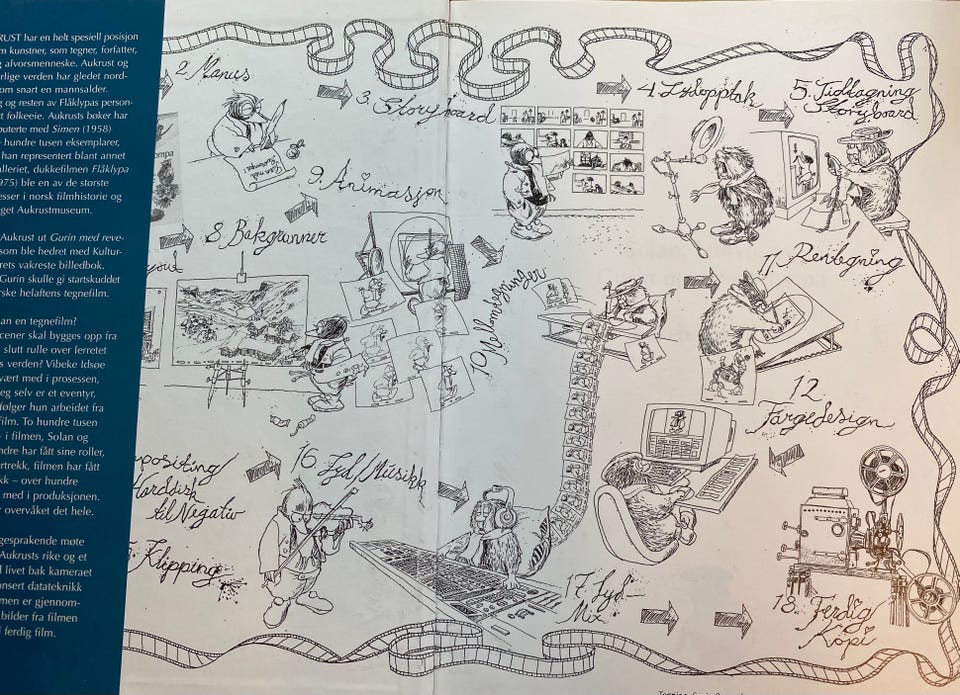 RUST har en helt spesiell posisjon
m kunstner, som tegner, forfatter,
g alvorsmenneske. Aukrust og
rlige verden har gledet nord-
om snart en mannsalder.
g og resten av Flåklypas person-
t folkeeie. Aukrusts bøker har
buterte med Simen (1958)
hundre tusen eksemplarer,
han representert blant annet
alleriet, dukkefilmen Flåklypa
975) ble en av de største
esser i norsk filmhistorie og
get Aukrustmuseum.
Aukrust ut Gurin med reve-
som ble hedret med Kultur-
rets vakreste billedbok.
Gurin skulle gi startskuddet
rske helaftens tegnefilm.
an en tegnefilm?
cener skal bygges opp fra
slutt rulle over lerretet
s verden? Vibeke Idsøe
vært med i prosessen,
eg selv er et eventyr,
følger hun arbeidet fra
film. To hundre tusen
i filmen, Solan og
ndre har fått sine roller,
rtrekk, filmen har fått
kk – over hundre
med i produksjonen.
r overvåket det hele.
gesprakende møte
Aukrusts rike og et
l livet bak kameraet
nsert datateknikk
men er gjennom-
bilder fra filmen
l ferdig film.
2. Manus
3. Storyboard
4. Lydopptak
5. Tidtagning
Storyboard
ompa
yout
8. Bakgrunner
9. Animasjon
10 Mellomtegninger
11. Rentegning
12
Fargedesign
mpositing/
Harddisk
til Negativ
Klipping
16 Lyd/Musikk
17. Lyd-
Mix
18. Ferdig
Kopi